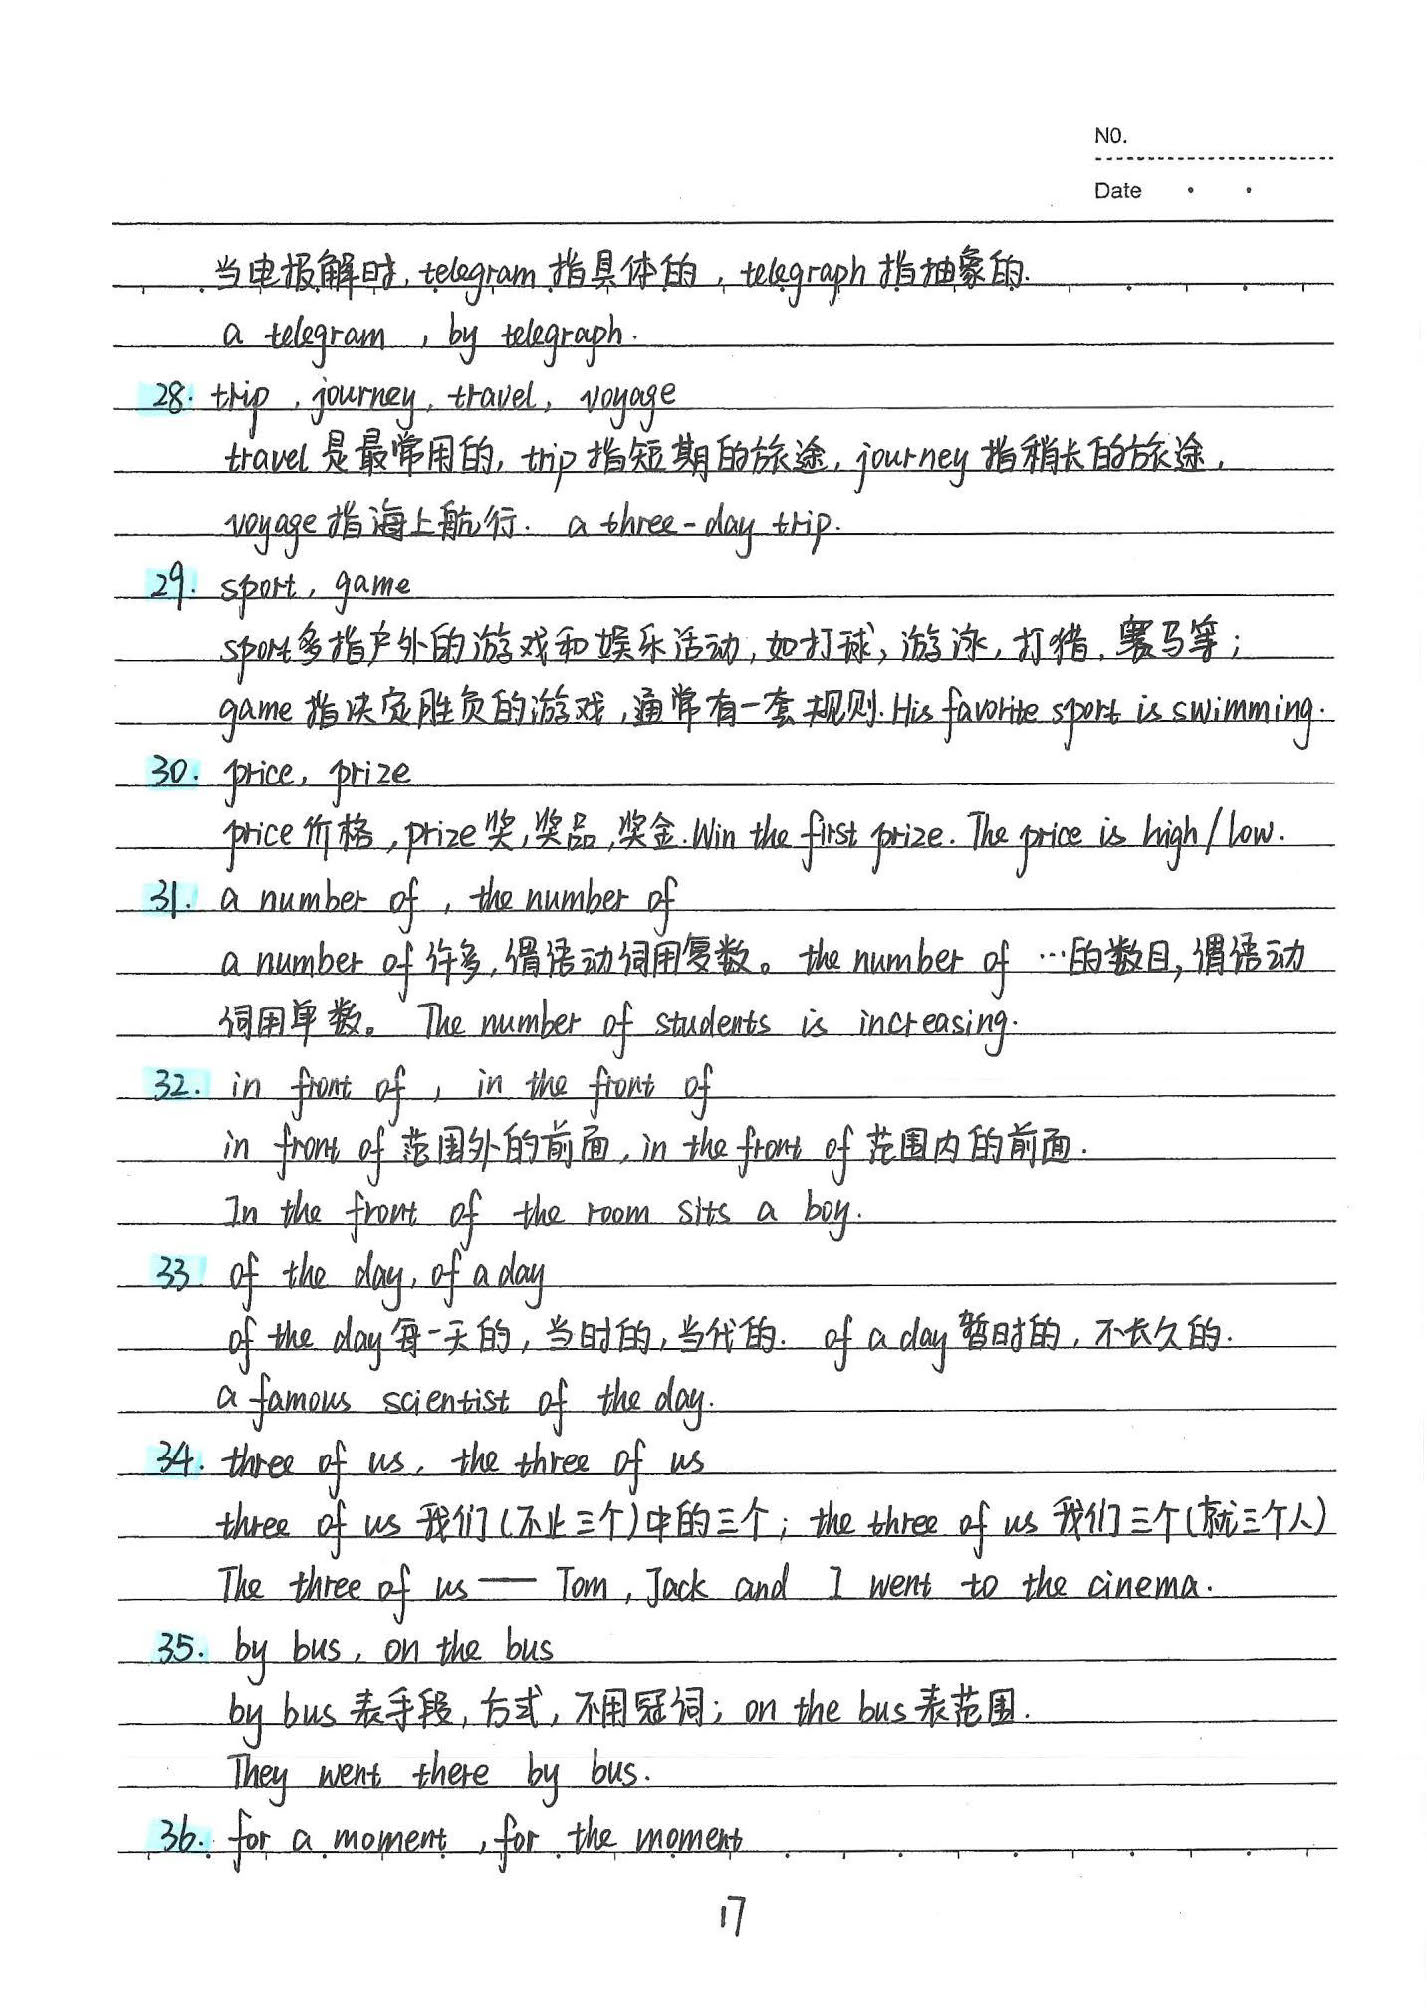 NO.
Date
当电报解时, telegram 指具体的, telegraph 指抽象的.
a telegram , by telegraph.
28. trip , journey, travel, voyage
travel 是最常用的, trip 指短期的旅途, journey 指稍长的旅途,
voyage 指海上航行. a three-day trip.
29. sport, game
sport 多指户外的游戏和娱乐活动, 如打球, 游泳, 打猎, 赛马等;
game 指决定胜负的游戏, 通常有一套规则. His favorite sport is swimming.
30. price, prize
price 价格, prize 奖, 奖品, 奖金. Win the first prize. The price is high/low.
31. a number of , the number of
a number of 许多, 谓语动词用复数。 the number of …的数目, 谓语动
词用单数。 The number of students is increasing.
32. in front of , in the front of
in front of 范围外的前面, in the front of 范围内的前面.
In the front of the room sits a boy.
33. of the day, of a day
of the day 每一天的, 当时的, 当代的. of a day 暂时的, 不长久的.
a famous scientist of the day.
34. three of us, the three of us
three of us 我们(不止三个)中的三个; the three of us 我们三个(就三个人)
The three of us — Tom, Jack and I went to the cinema.
35. by bus, on the bus
by bus 表手段, 方式, 不用冠词; on the bus 表范围.
They went there by bus.
36. for a moment , for the moment
17